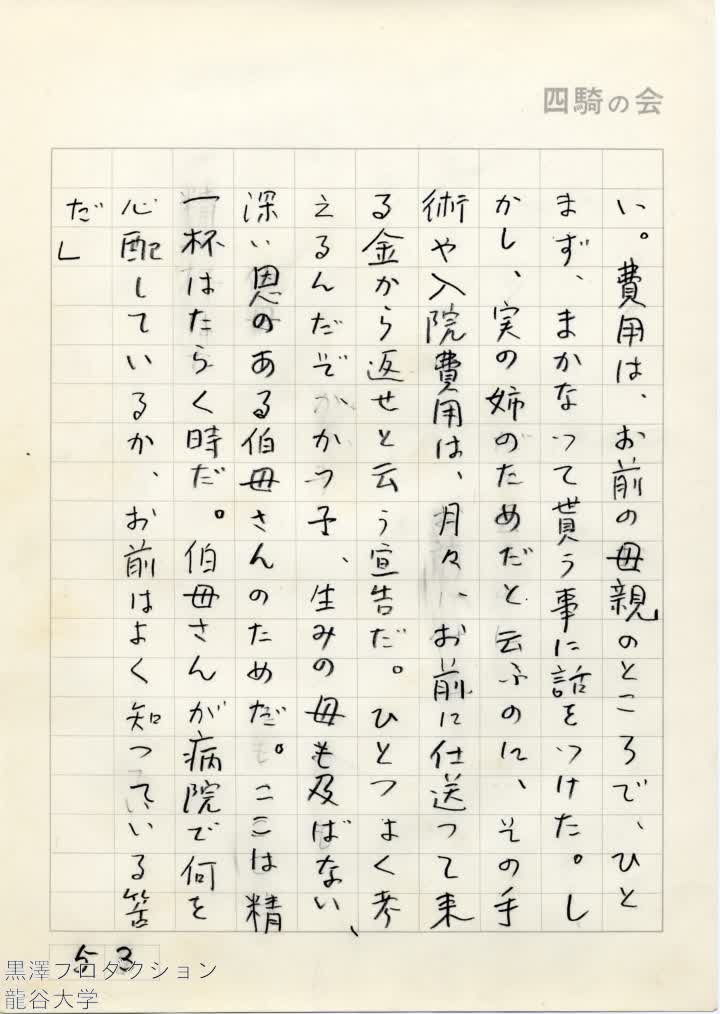 四騎の会
い。費用は、お前の母親のところで、ひと
まず、まかなって貰う事に話をつけた。し
かし、実の姉のためだと云ふのに、その手
術や入院費用は、月々、お前に仕送って来
る金から返せと云う宣告だ。ひとつよく考
えるんだぞ、かつ子、生みの母も及ばない、
深い恩のある伯母さんのためだ。ここは精
一杯はたらく時だ。伯母さんが病院で何を
心配しているか、お前はよく知っている筈
だ」
53
黒澤プロダクション
龍谷大学